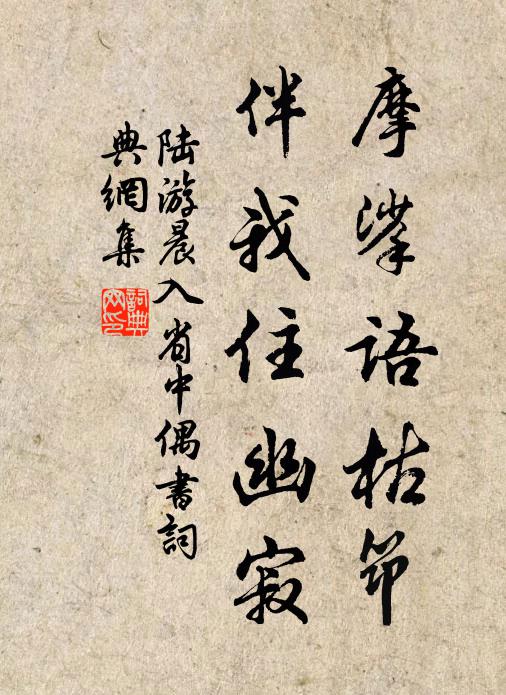 摩挲語枯筇
伴我住幽寂
陸游晨入省中偶書詞
典網集
詞典網印